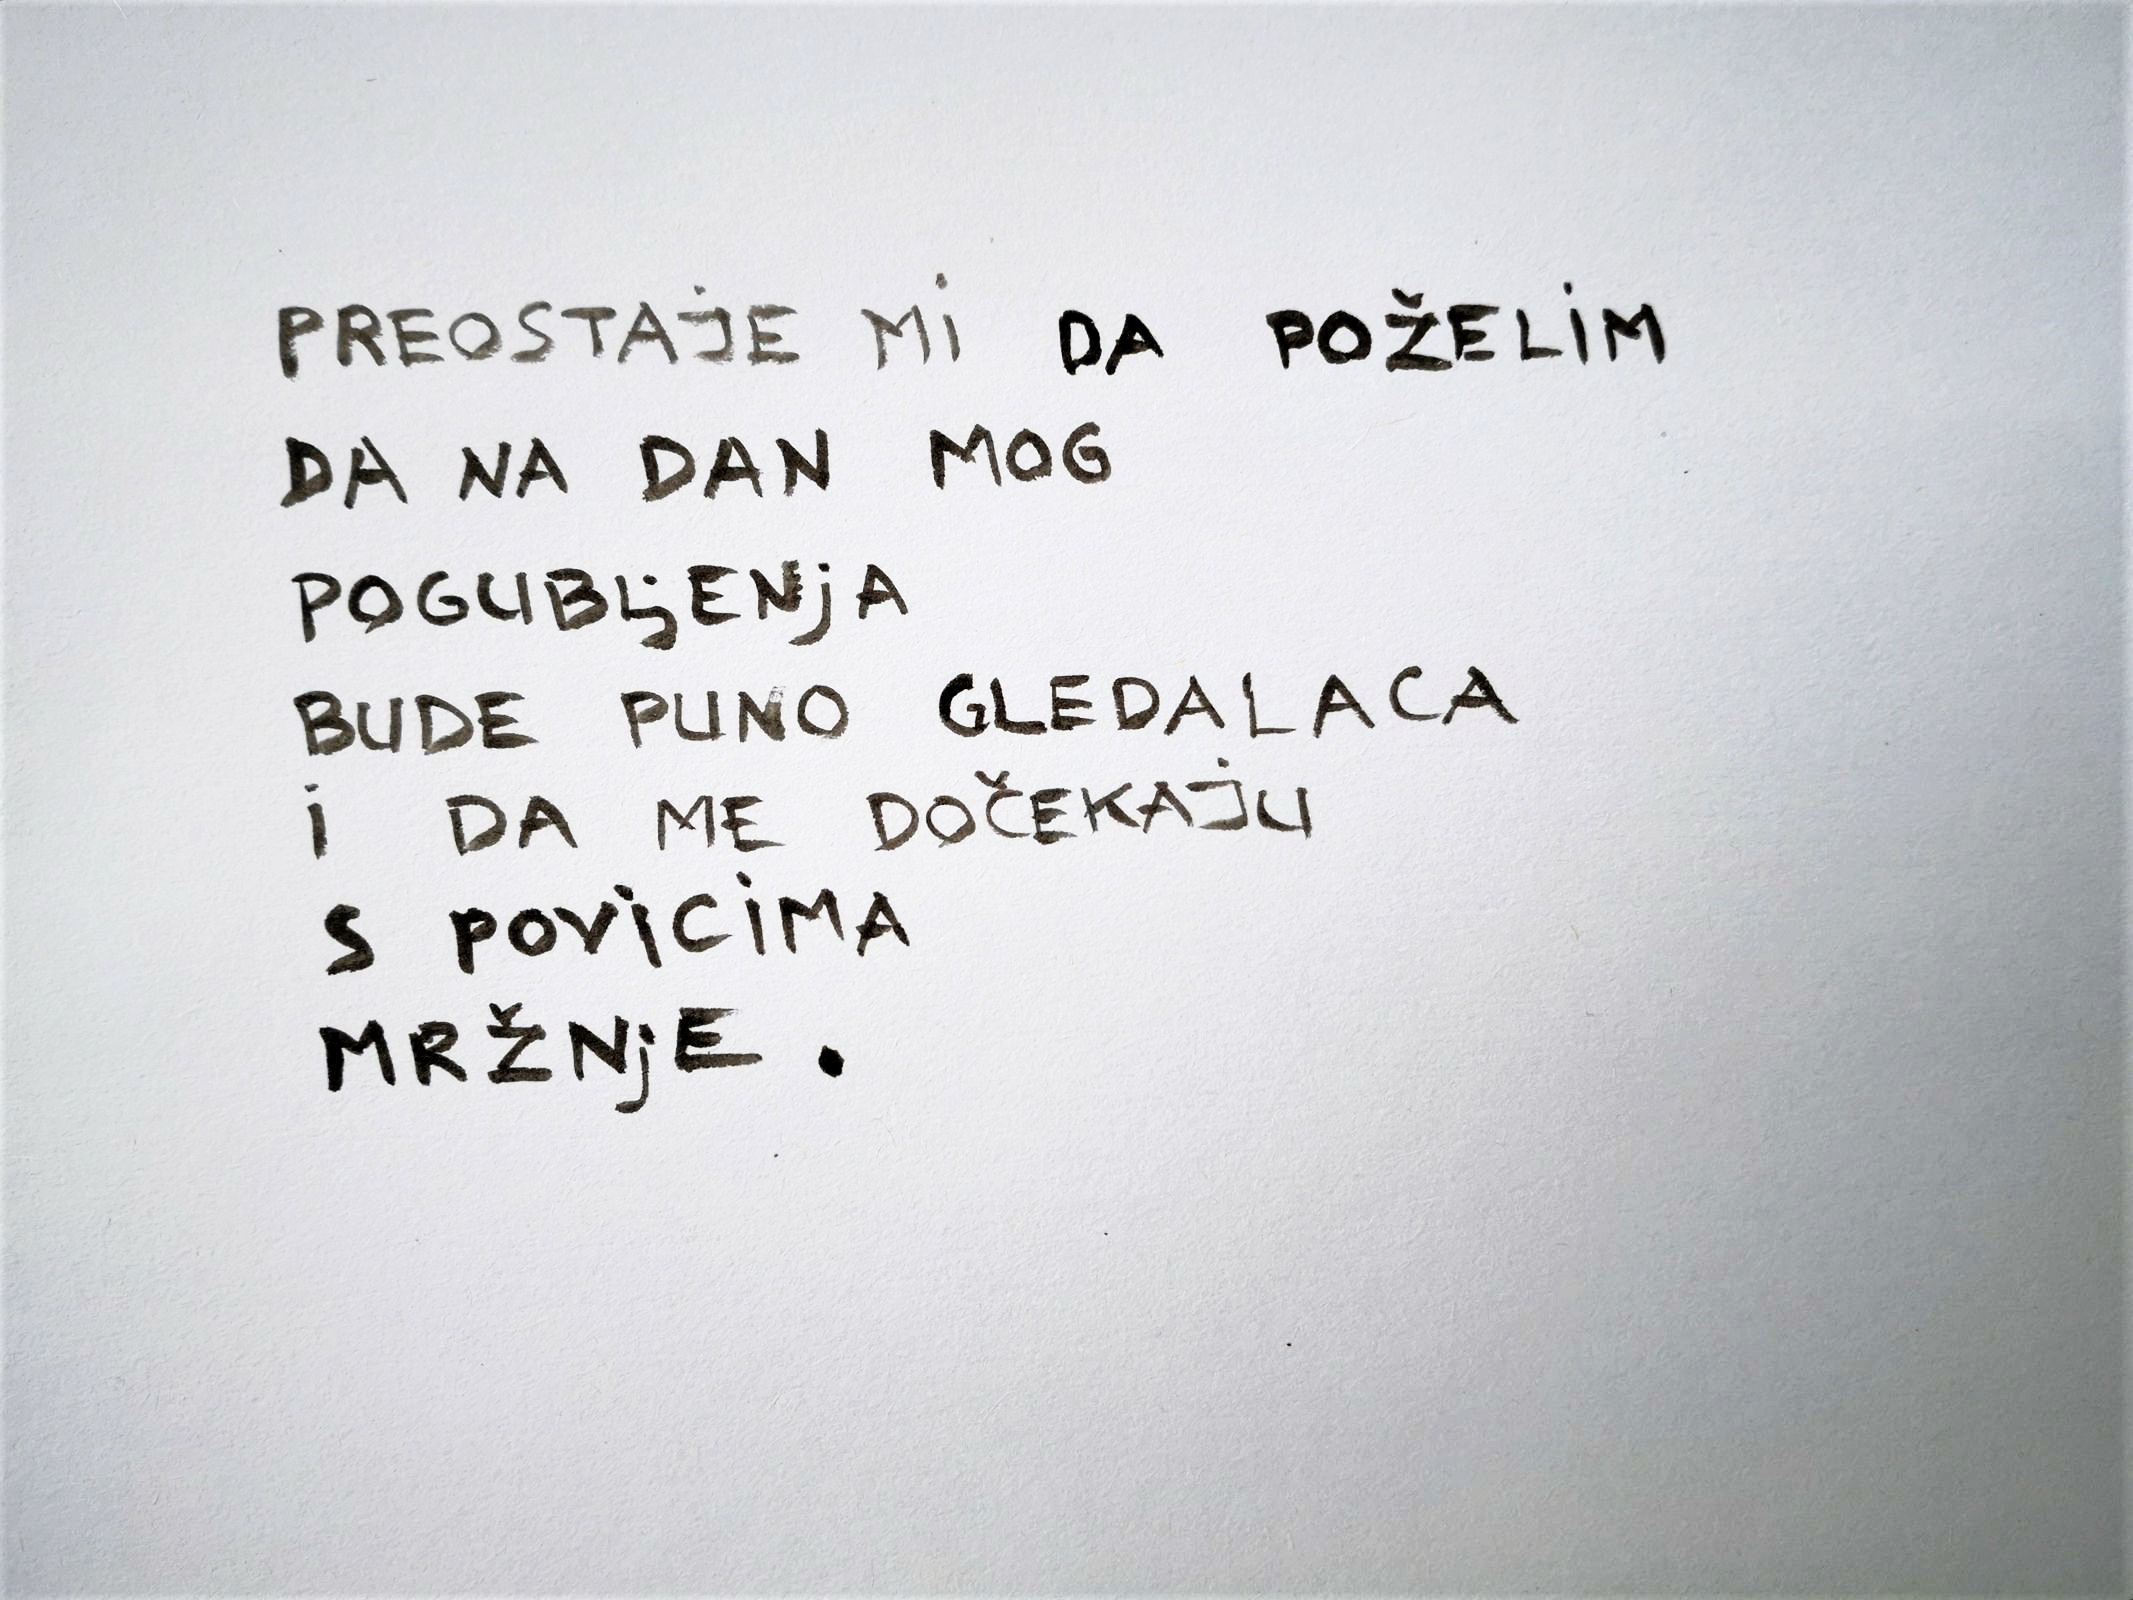 PREOSTAJE MI DA POŽELIM
DA NA DAN MOG
POGUBLjENjA
BUDE PUNO GLEDALACA
I DA ME DOČEKAJU
S POVICIMA
MRŽNjE.